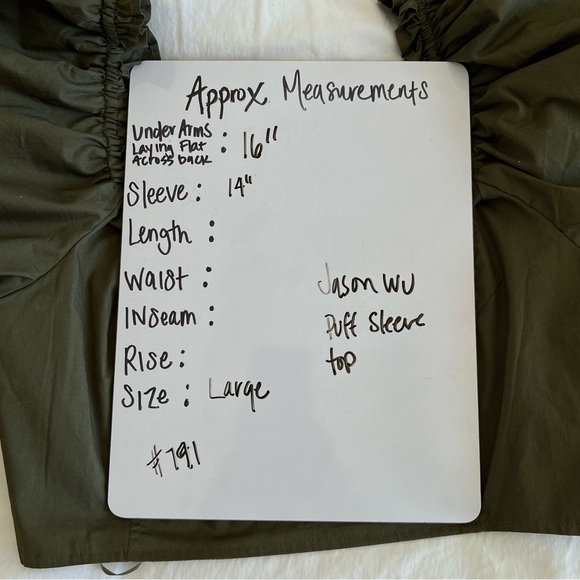 Approx Measurements
Under Arms
Laying Flat
Across back : 16"
Sleeve : 14"
Length :
Waist :
Inseam :
Rise :
Size : Large
Jason Wu
Puff Sleeve
top
#791